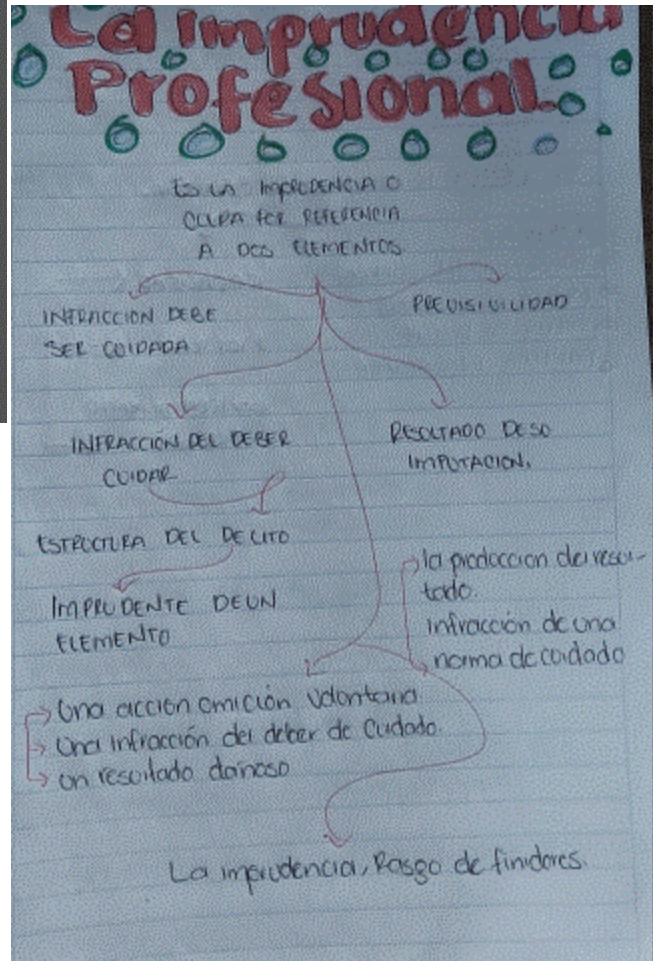 La Imprudencia
Profesional.
ES LA IMPRUDENCIA O
CULPA POR REFERENCIA
A DOS ELEMENTOS
INFRACCION DEBE
SER CUIDADA
PREVISIVILIDAD
INFRACCIÓN DEL DEBER
CUIDAR
RESULTADO DE SO
IMPUTACION.
ESTRUCTURA DEL DELITO
IMPRUDENTE DE UN
ELEMENTO
la produccion del resul-
tado.
infracción de una
norma de cuidado
Una acción omición volontaria
Una infracción del deber de Cuidado.
un resultado dañoso
La imprudencia, Rasgo de finidores.